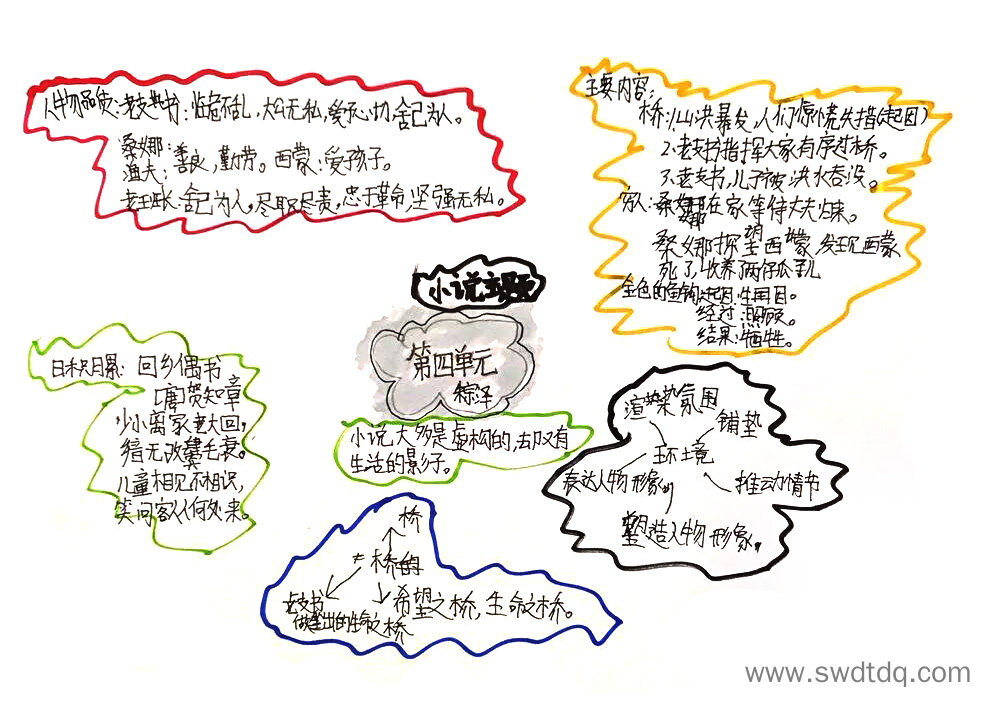 人物品质:老支书:临危不乱,大公无私,爱民心切,舍己为人。
桑娜:
渔夫:善良,勤劳。西蒙:爱孩子。
老班长:舍己为人,尽职尽责,忠于革命,坚强无私。
主要内容:
桥:1.山洪暴发,人们惊慌失措(起因)
2.老支书指挥大家有序过桥。
3.老支书,儿子被洪水吞没。
穷人:桑娜在家等待丈夫归来。
桑娜探望西蒙,发现西蒙
死了,收养两个孤儿
金色的鱼钩:起因:
经过:照顾。
结果:牺牲。
小说主题
第四单元
小说大多是虚构的,却又有
生活的影子。
日积月累:回乡偶书
[唐]贺知章
少小离家老大回,
乡音无改鬓毛衰。
儿童相见不相识,
笑问客从何处来。
渲染氛围
铺垫
环境
表达人物形象
推动情节
塑造人物形象。
桥
桥的
老支书
做出的生命之桥
希望之桥,生命之桥。
www.swdtdq.com